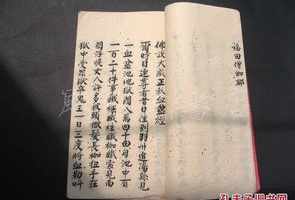 福田僧伽耶
佛說大藏正教血盆經
爾時目連尊者昔日往到羽州追陽縣見
一血盆池地獄闊八萬四千由旬池中有
一百二十件事鐵樑鐵柱鐵枷鐵索見南
閻浮提女人許多披頭散髮長枷杻手在
獄中受罪獄卒鬼王一日三度將血勒叫
孔夫子旧书网